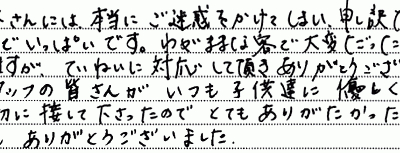 さんには、本当にご迷惑をかけてしまい、申し訳
でいっぱいです。わがままな客で大変
すが、ていねいに対応して頂きありがとうござ
ッフの皆さんが いつも子供達に 優しく
切に接して下さったので とてもありがたかった
ありがとうございました。